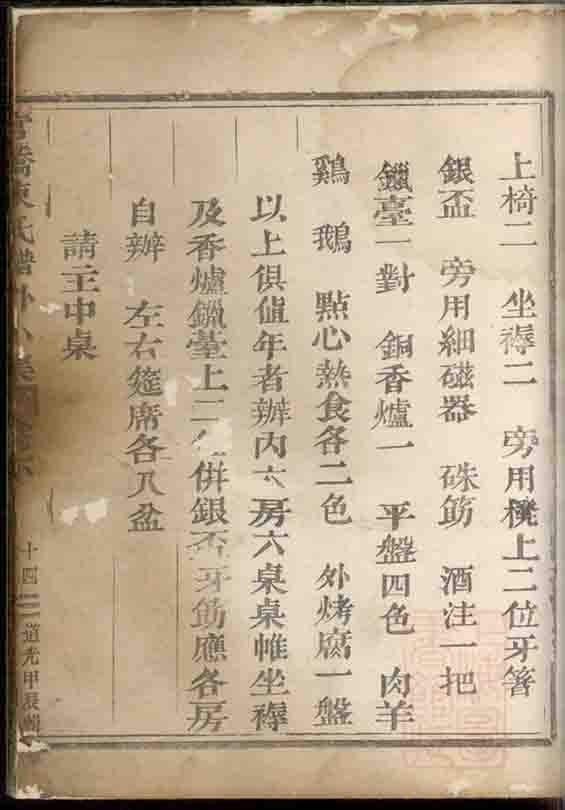 上椅二 坐褥二 旁用櫈上二位牙箸
銀盃 旁用細磁器 硃筋 酒注一把
鑞臺一對 銅香爐一 平盤四色 肉羊
鷄 鵝 點心熱食各二色 外烤腐一盤
以上俱值年者辦内六房六桌桌帷坐褥
及香爐鑞臺上二 併銀盃牙筯應各房
自辦 左右筵席各八盆
請主中桌
橋 氏譜
十四
道光甲辰